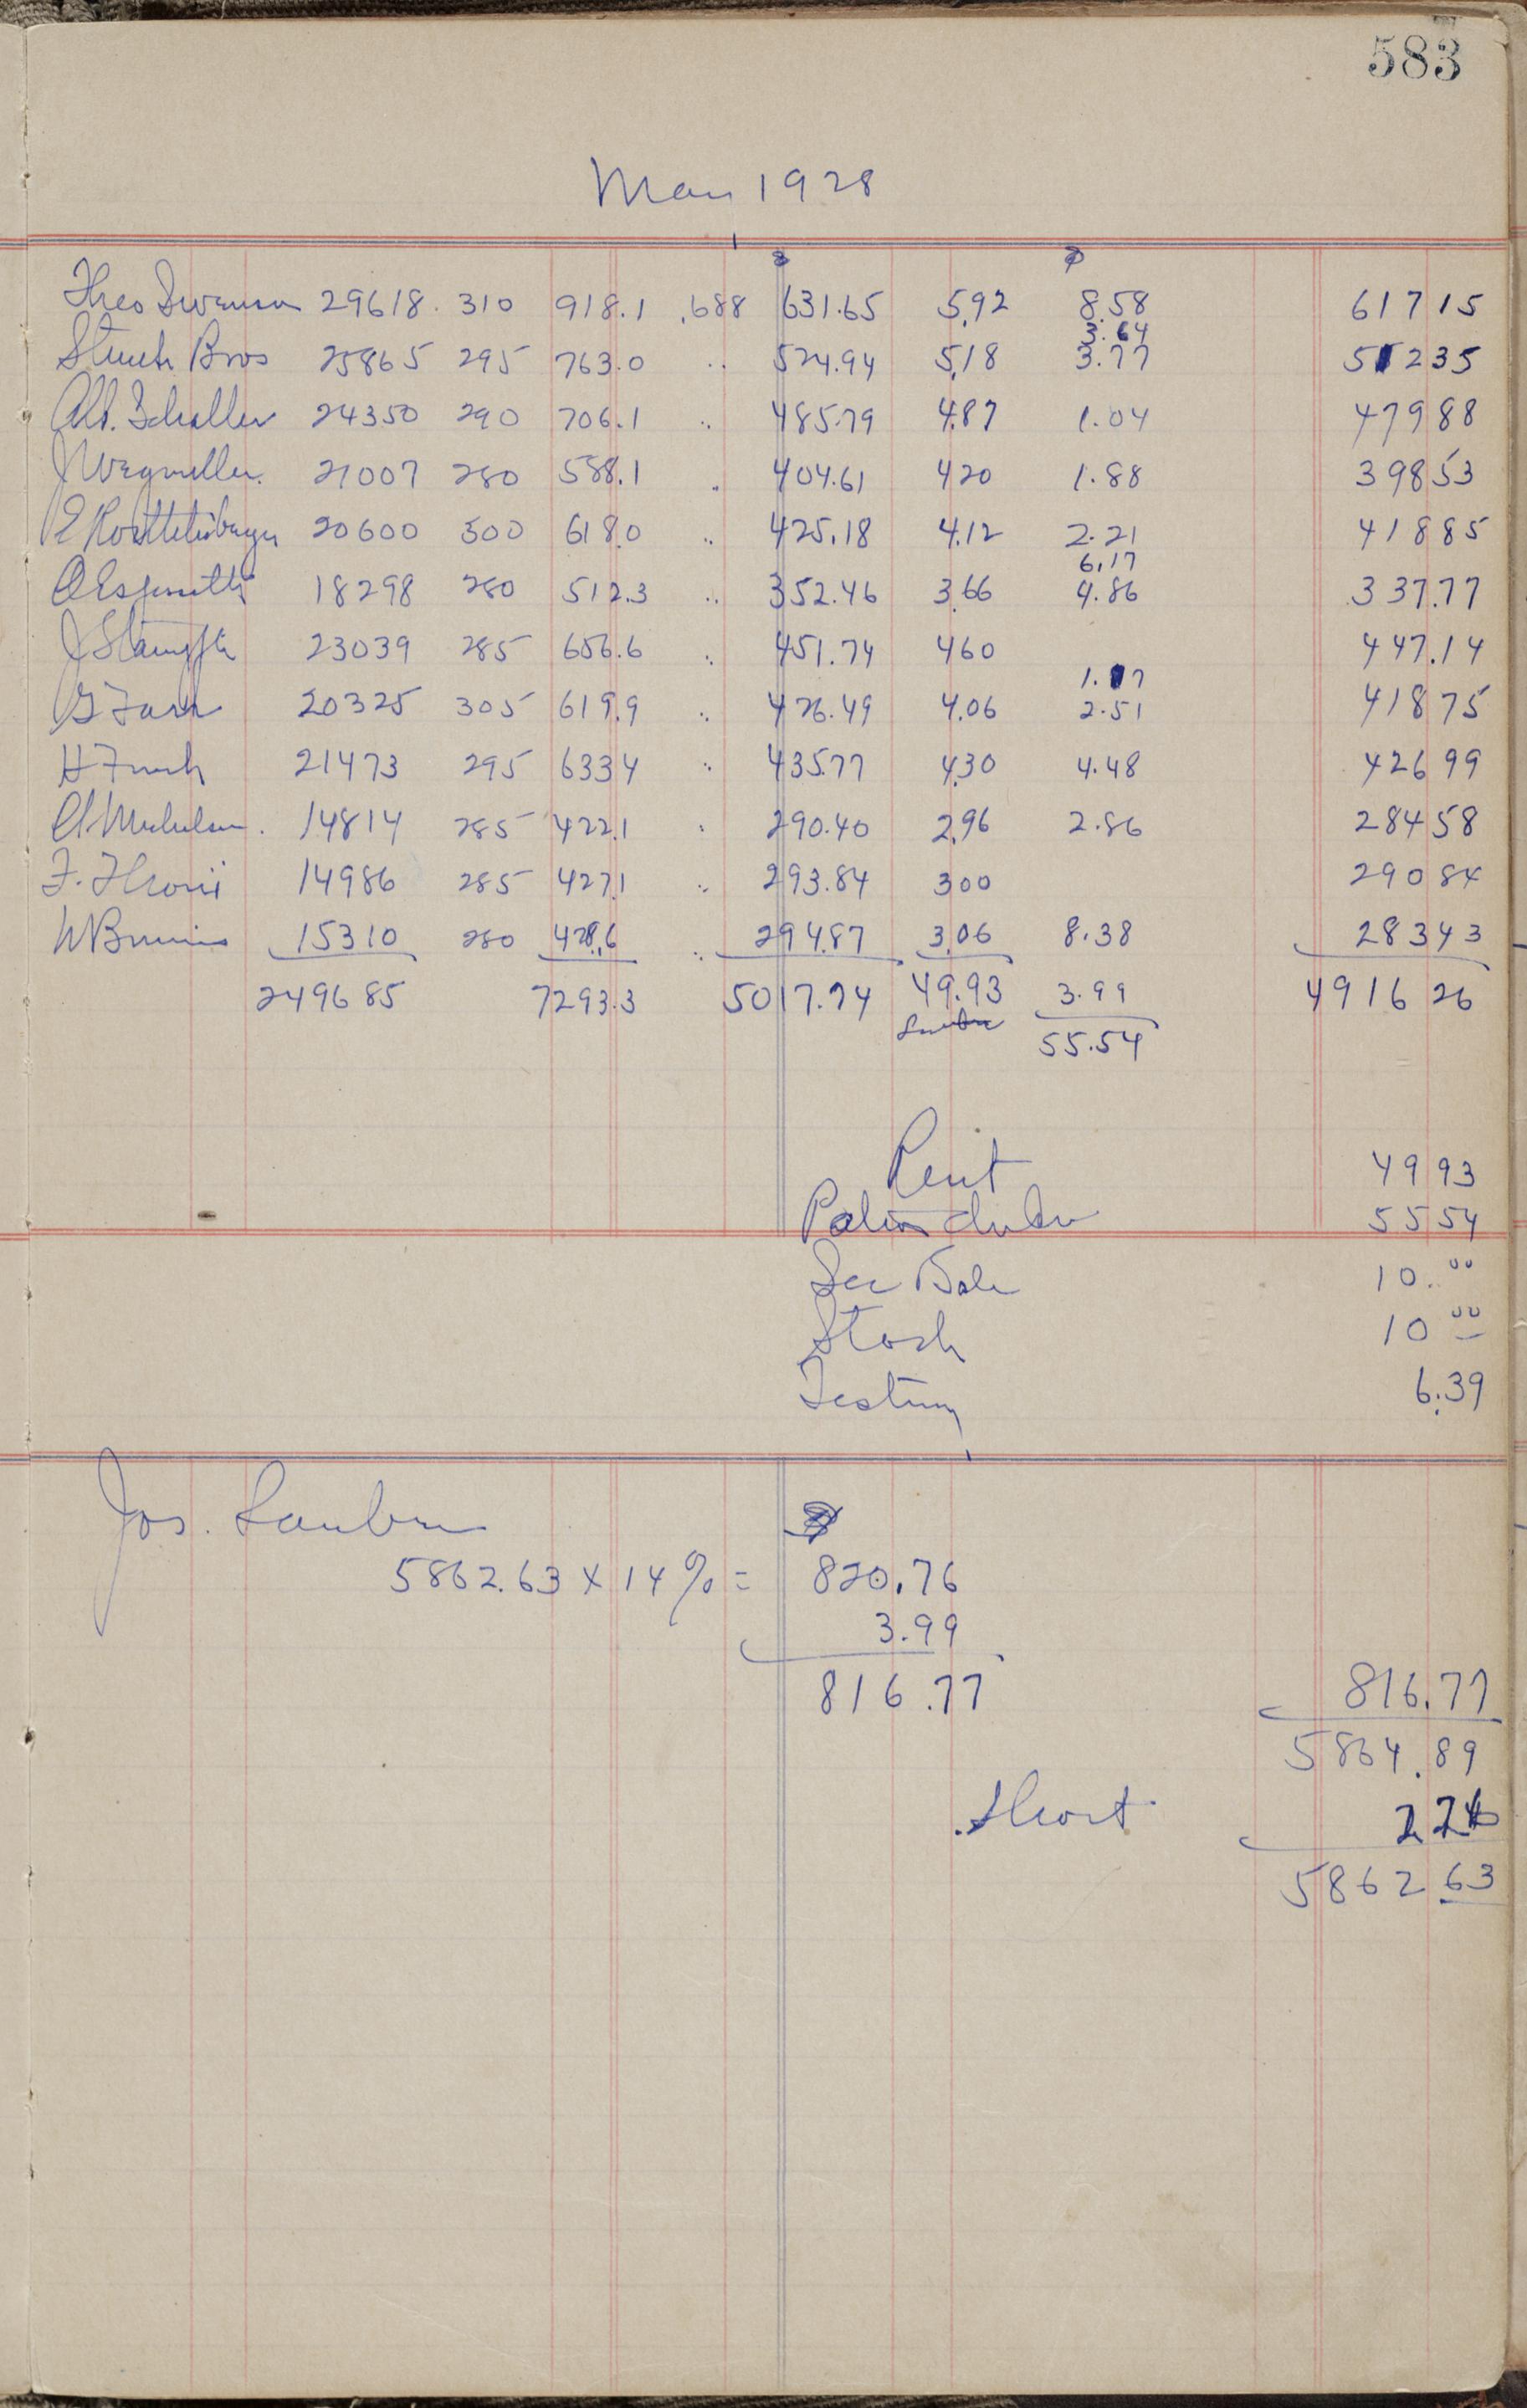 583
May 1928
Theo Swenson 29618 310 918.1 .688 631.65 5.92 8.58 617 15
3.64
Stuch Bros 25865 295 763.0 .. 524.94 5.18 3.77 512 35
Alb. Schaller 24350 290 706.1 .. 485.79 4.87 1.04 479 88
J Wegmuller. 21007 280 588.1 .. 404.61 4 20 1.88 398 53
20600 300 618.0 .. 425.18 4.12 2.21 418 85
6.17
18298 280 512.3 .. 352.46 3.66 4.86 337.77
J Stampfli 23039 285 656.6 .. 451.74 4 60 447.14
20325 305 619.9 .. 426.49 4.06 2.51 418 75
H 21473 295 633 4 .. 435.77 4.30 4.48 426 99
14814 285 422.1 .. 290.40 2.96 2.86 284 58
F. 14986 285 427.1 .. 293.84 3 00 290 84
W 15310 280 428.6 .. 294.87 3.06 8.38 283 43
249685 7293.3 5017.74 49.93 3.99 4916 26
55.54
Rent 49 93
55 54
10.00
Stock 10 00
Testing 6.39
Jos.
5862.63 x 14 % = 820.76
3.99
816.77 816.77
5864.89
Short 2 26
5862 63